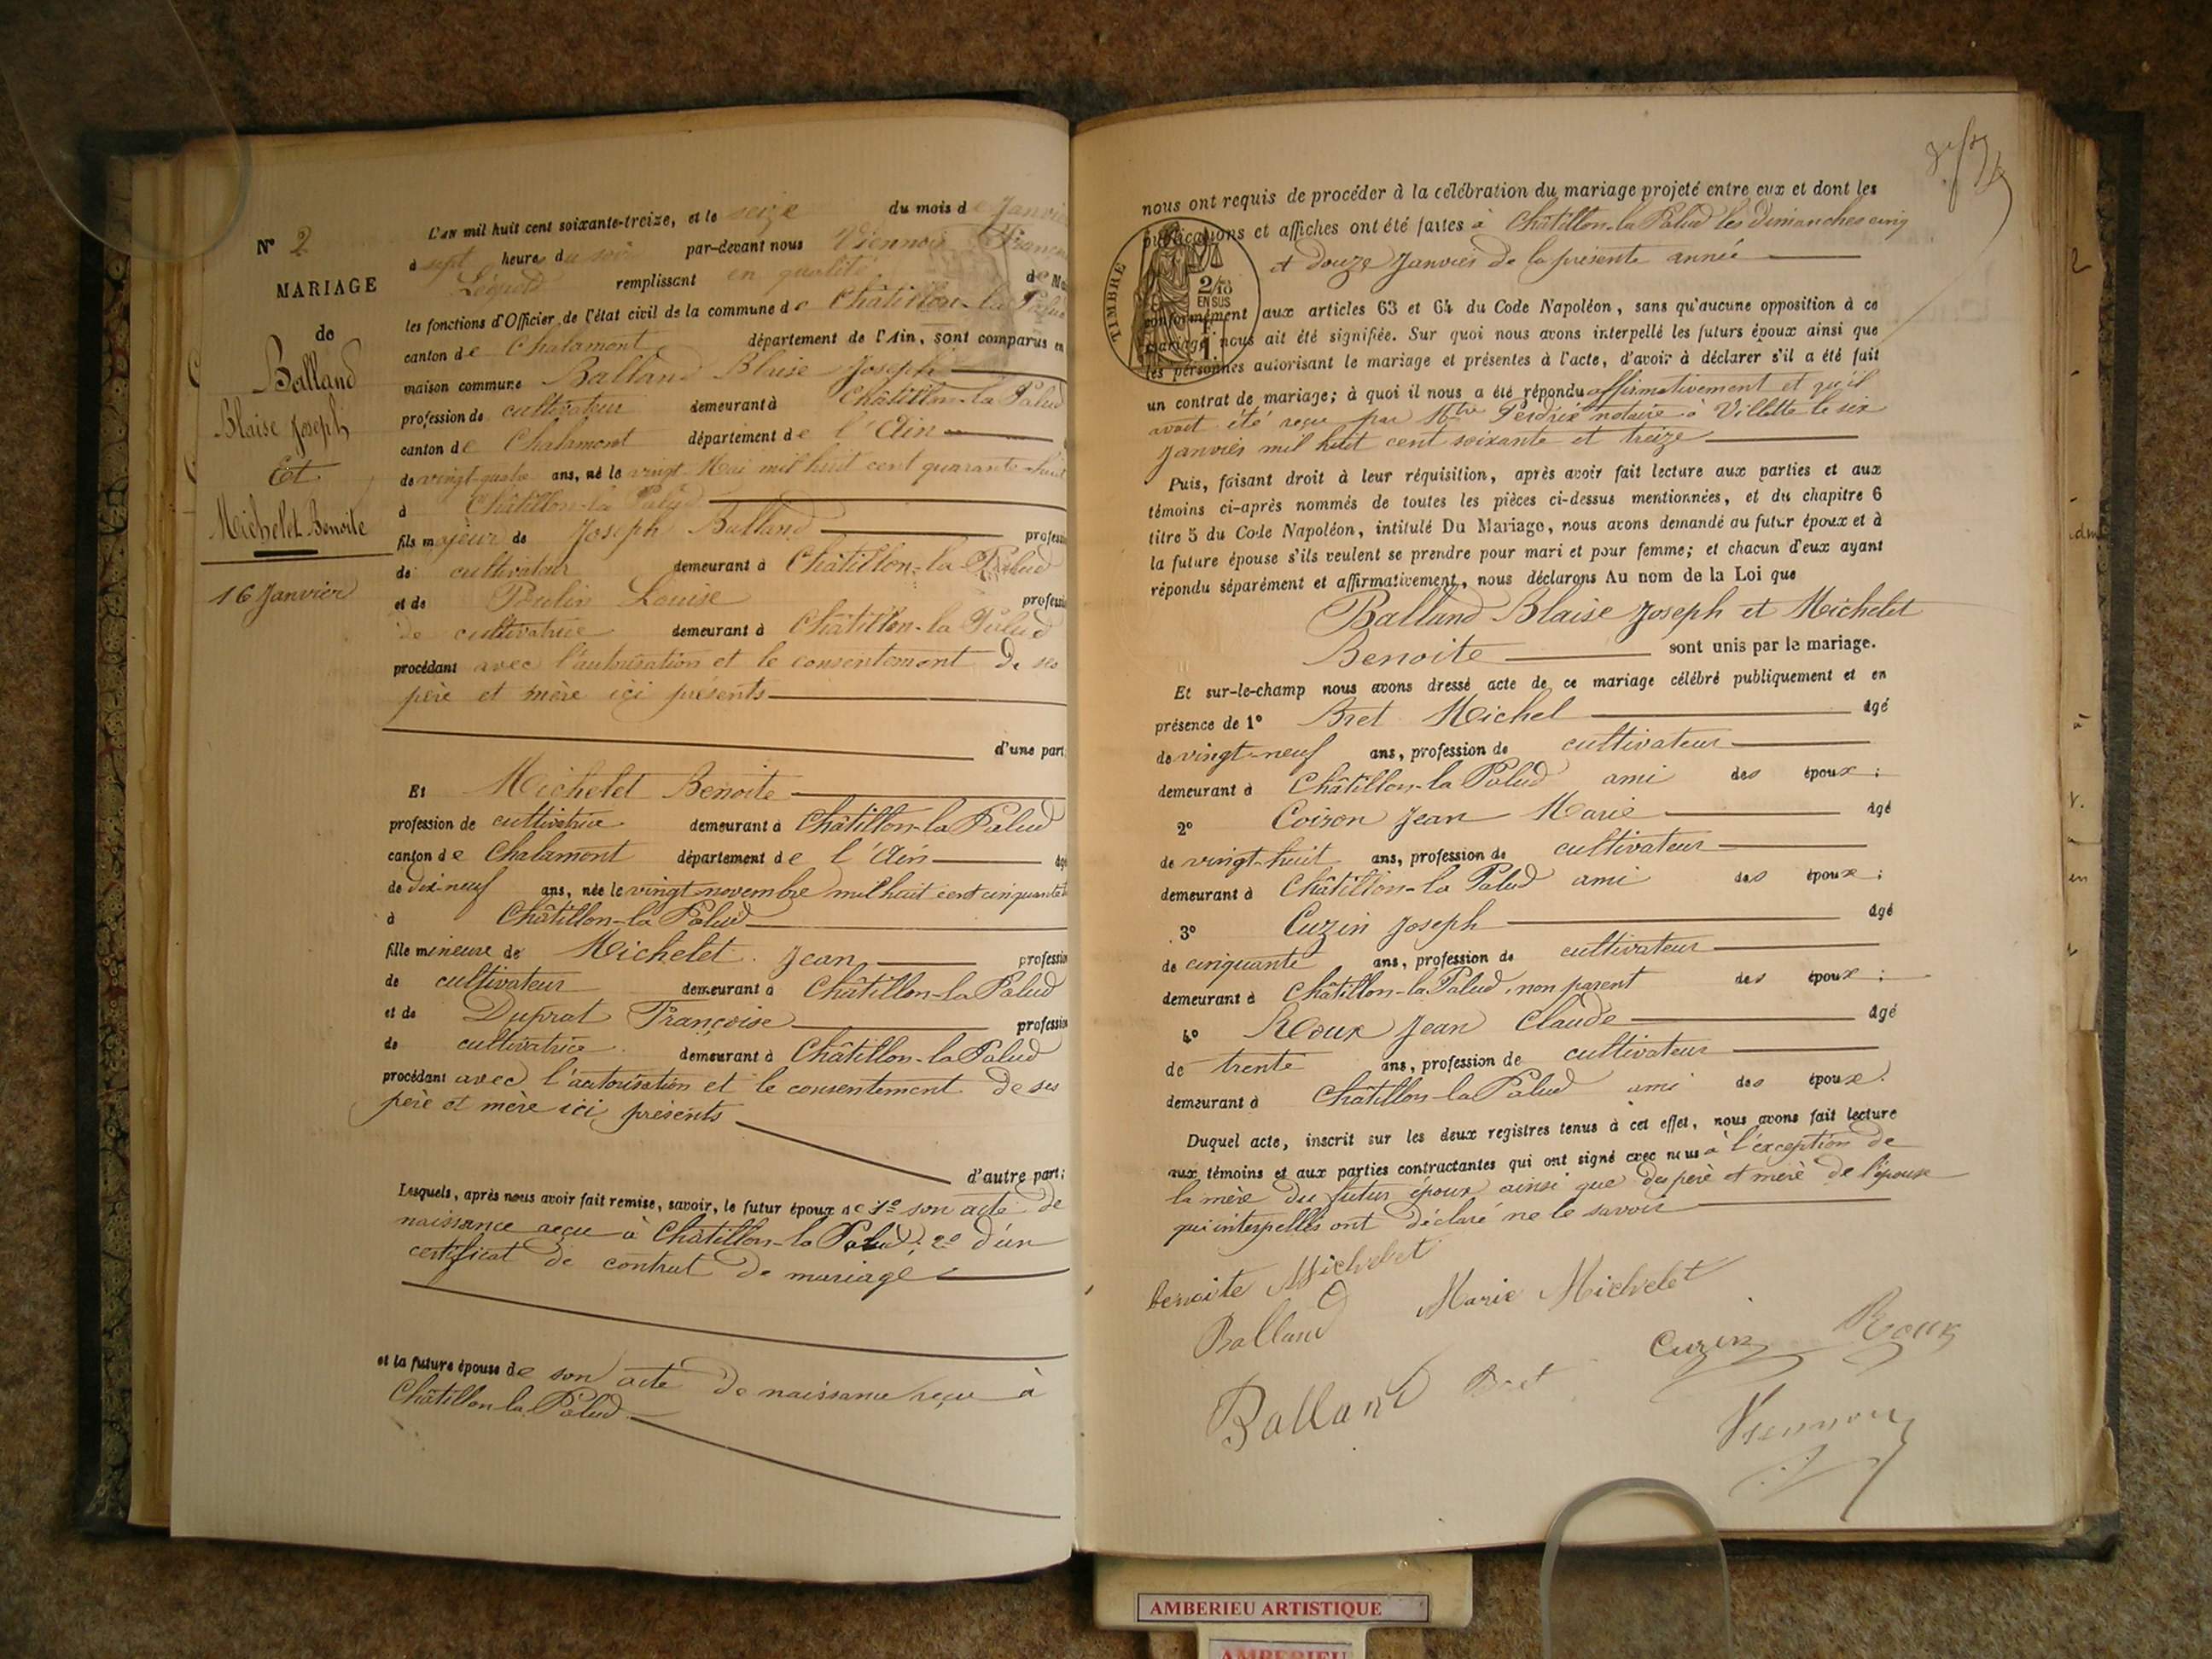 N° 2
MARIAGE
de
Balland
Blaise Joseph
Et
Michelet Benoite
16 Janvier
L'an mil huit cent soixante-treize, et le seize du mois de Janvier
à sept heures du soir par-devant nous Viennois François
Léopold remplissant en qualité de
les fonctions d'Officier de l'état civil de la commune de Châtillon-la-Palud
canton de Chalamont département de l'Ain, sont comparus en
maison commune Balland Blaise Joseph
profession de cultivateur demeurant à Châtillon-la Palud
canton de Chalamont département de l'Ain
de vingt-quatre ans, né le vingt Mai mil huit cent quarante-huit
à Châtillon-la Palud
fils majeur de Joseph Balland profession
de cultivateur demeurant à Châtillon-la Palud
et de Poulin Louise profession
de cultivatrice demeurant à Châtillon-la Palud
procédant avec l'autorisation et le consentement de ses
père et mère ici présents
d'une part;
Et Michelet Benoite
profession de cultivatrice demeurant à Châtillon-la Palud
canton de Chalamont département de l'Ain âgé
de dix-neuf ans, née le vingt novembre mil huit cent cinquante
à Châtillon-la Palud
fille mineure de Michelet Jean profession
de cultivateur demeurant à Châtillon-la Palud
et de Duprat Françoise profession
de cultivatrice demeurant à Châtillon-la Palud
procédant avec l'autorisation et le consentement de ses
père et mère ici présents
d'autre part;
Lesquels, après nous avoir fait remise, savoir, le futur époux de 1° son acte de
naissance reçu à Châtillon-la Palud; 2° d'un
certificat de contrat de mariage
et la future épouse de son acte de naissance reçu à
Châtillon-la Palud
nous ont requis de procéder à la célébration du mariage projeté entre eux et dont les
publications et affiches ont été faites à Châtillon-la Palud les dimanches cinq
et douze Janvier de la présente année
TIMBRE
2/10
EN SUS
conformément aux articles 63 et 64 du Code Napoléon, sans qu'aucune opposition à ce
mariage nous ait été signifiée. Sur quoi nous avons interpellé les futurs époux ainsi que
les personnes autorisant le mariage et présentes à l'acte, d'avoir à déclarer s'il a été fait
un contrat de mariage; à quoi il nous a été répondu affirmativement et qu'il
avait été reçu par Mtre Perdrix notaire à Villette le six
Janvier mil huit cent soixante et treize
Puis, faisant droit à leur réquisition, après avoir fait lecture aux parties et aux
témoins ci-après nommés de toutes les pièces ci-dessus mentionnées, et du chapitre 6
titre 5 du Code Napoléon, intitulé Du Mariage, nous avons demandé au futur époux et à
la future épouse s'ils veulent se prendre pour mari et pour femme; et chacun d'eux ayant
répondu séparément et affirmativement, nous déclarons Au nom de la Loi que
Balland Blaise Joseph et Michelet
Benoite sont unis par le mariage.
Et sur-le-champ nous avons dressé acte de ce mariage célébré publiquement et en
présence de 1° Bret Michel âgé
de vingt-neuf ans, profession de cultivateur
demeurant à Châtillon-la Palud ami des époux;
2° Coiron Jean Marie âgé
de vingt-huit ans, profession de cultivateur
demeurant à Châtillon-la Palud ami des époux;
3° Cuzin Joseph âgé
de cinquante ans, profession de cultivateur
demeurant à Châtillon-la Palud, non parent des époux;
4° Roux Jean Claude âgé
de trente ans, profession de cultivateur
demeurant à Châtillon-la Palud ami des époux.
Duquel acte, inscrit sur les deux registres tenus à cet effet, nous avons fait lecture
aux témoins et aux parties contractantes qui ont signé avec nous à l'exception de
la mère du futur époux ainsi que des père et mère de l'épouse
qui interpellés ont déclaré ne le savoir
benoite Michelet
Balland Marie Michelet
Cuzin Roux
Balland Bret
Viennois
AMBERIEU ARTISTIQUE
AMBERIEU